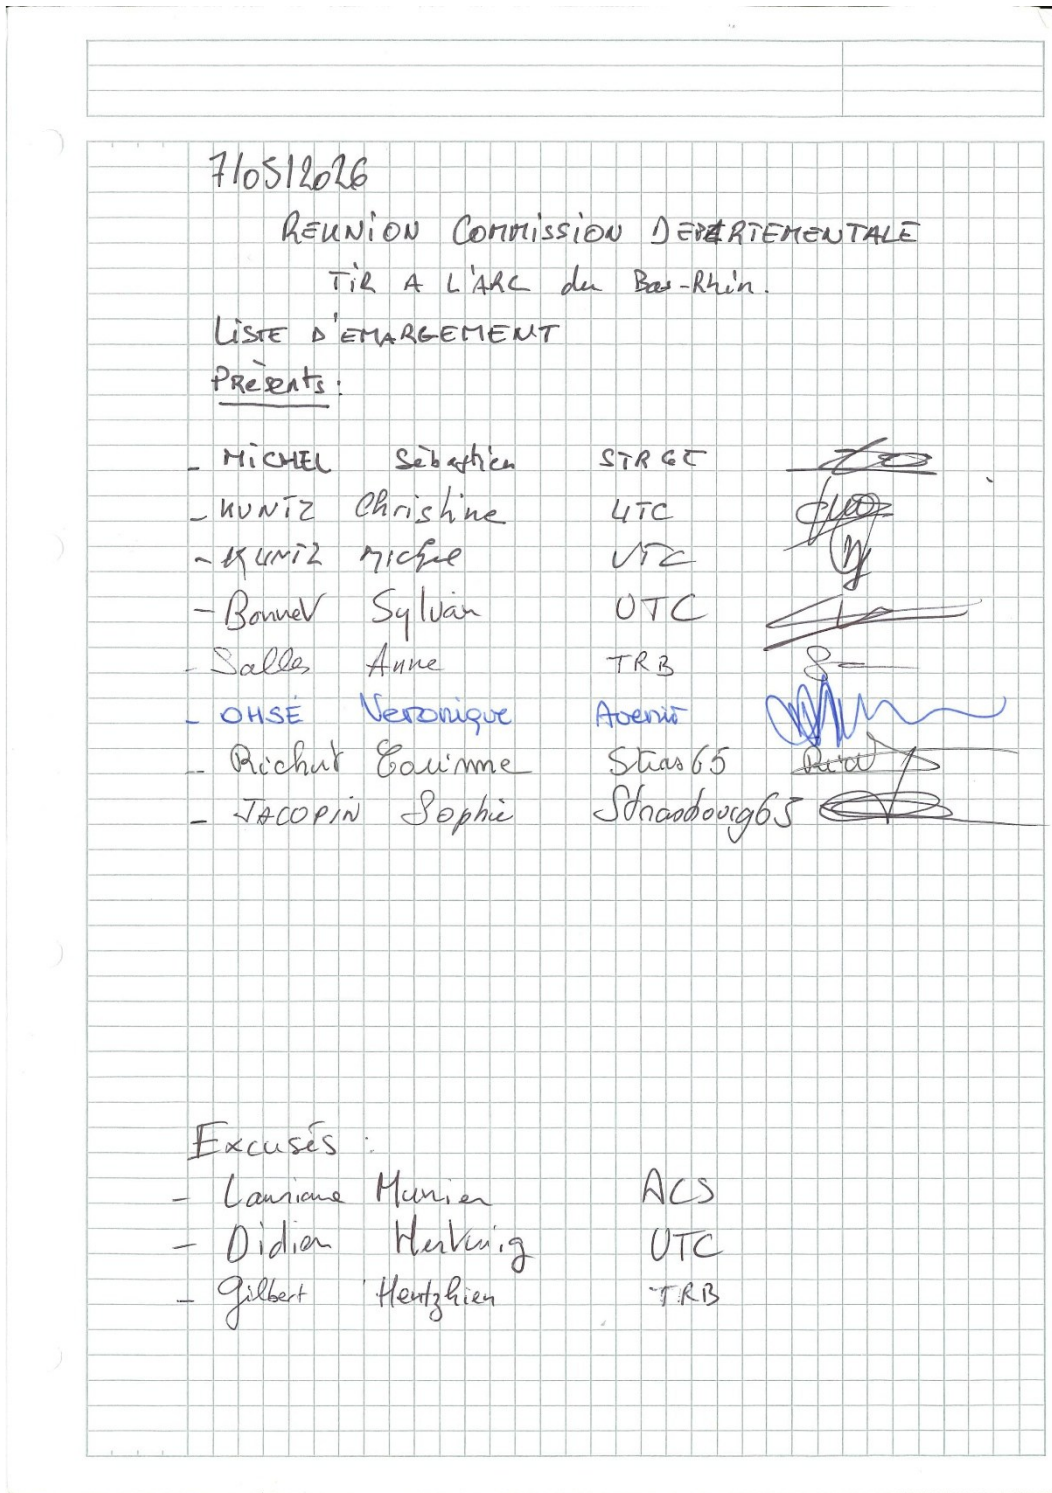 7/05/2026
REUNION COMMISSION DEPARTEMENTALE
TIR A L'ARC du Bas-Rhin.
LISTE D'EMARGEMENT
Présents :
- MICHEL Sébastien STRGE
- KUNTZ Christine UTC
- KUNTZ Michel UTC
- Bonnet Sylvain UTC
- Salles Anne TRB
- OHSÉ Veronique Avenir
- Richut Corinne Stras 65
- JACOPIN Sophie Strasbourg 65
Excusés :
- Lauriane Munier ACS
- Didier UTC
- Gilbert TRB